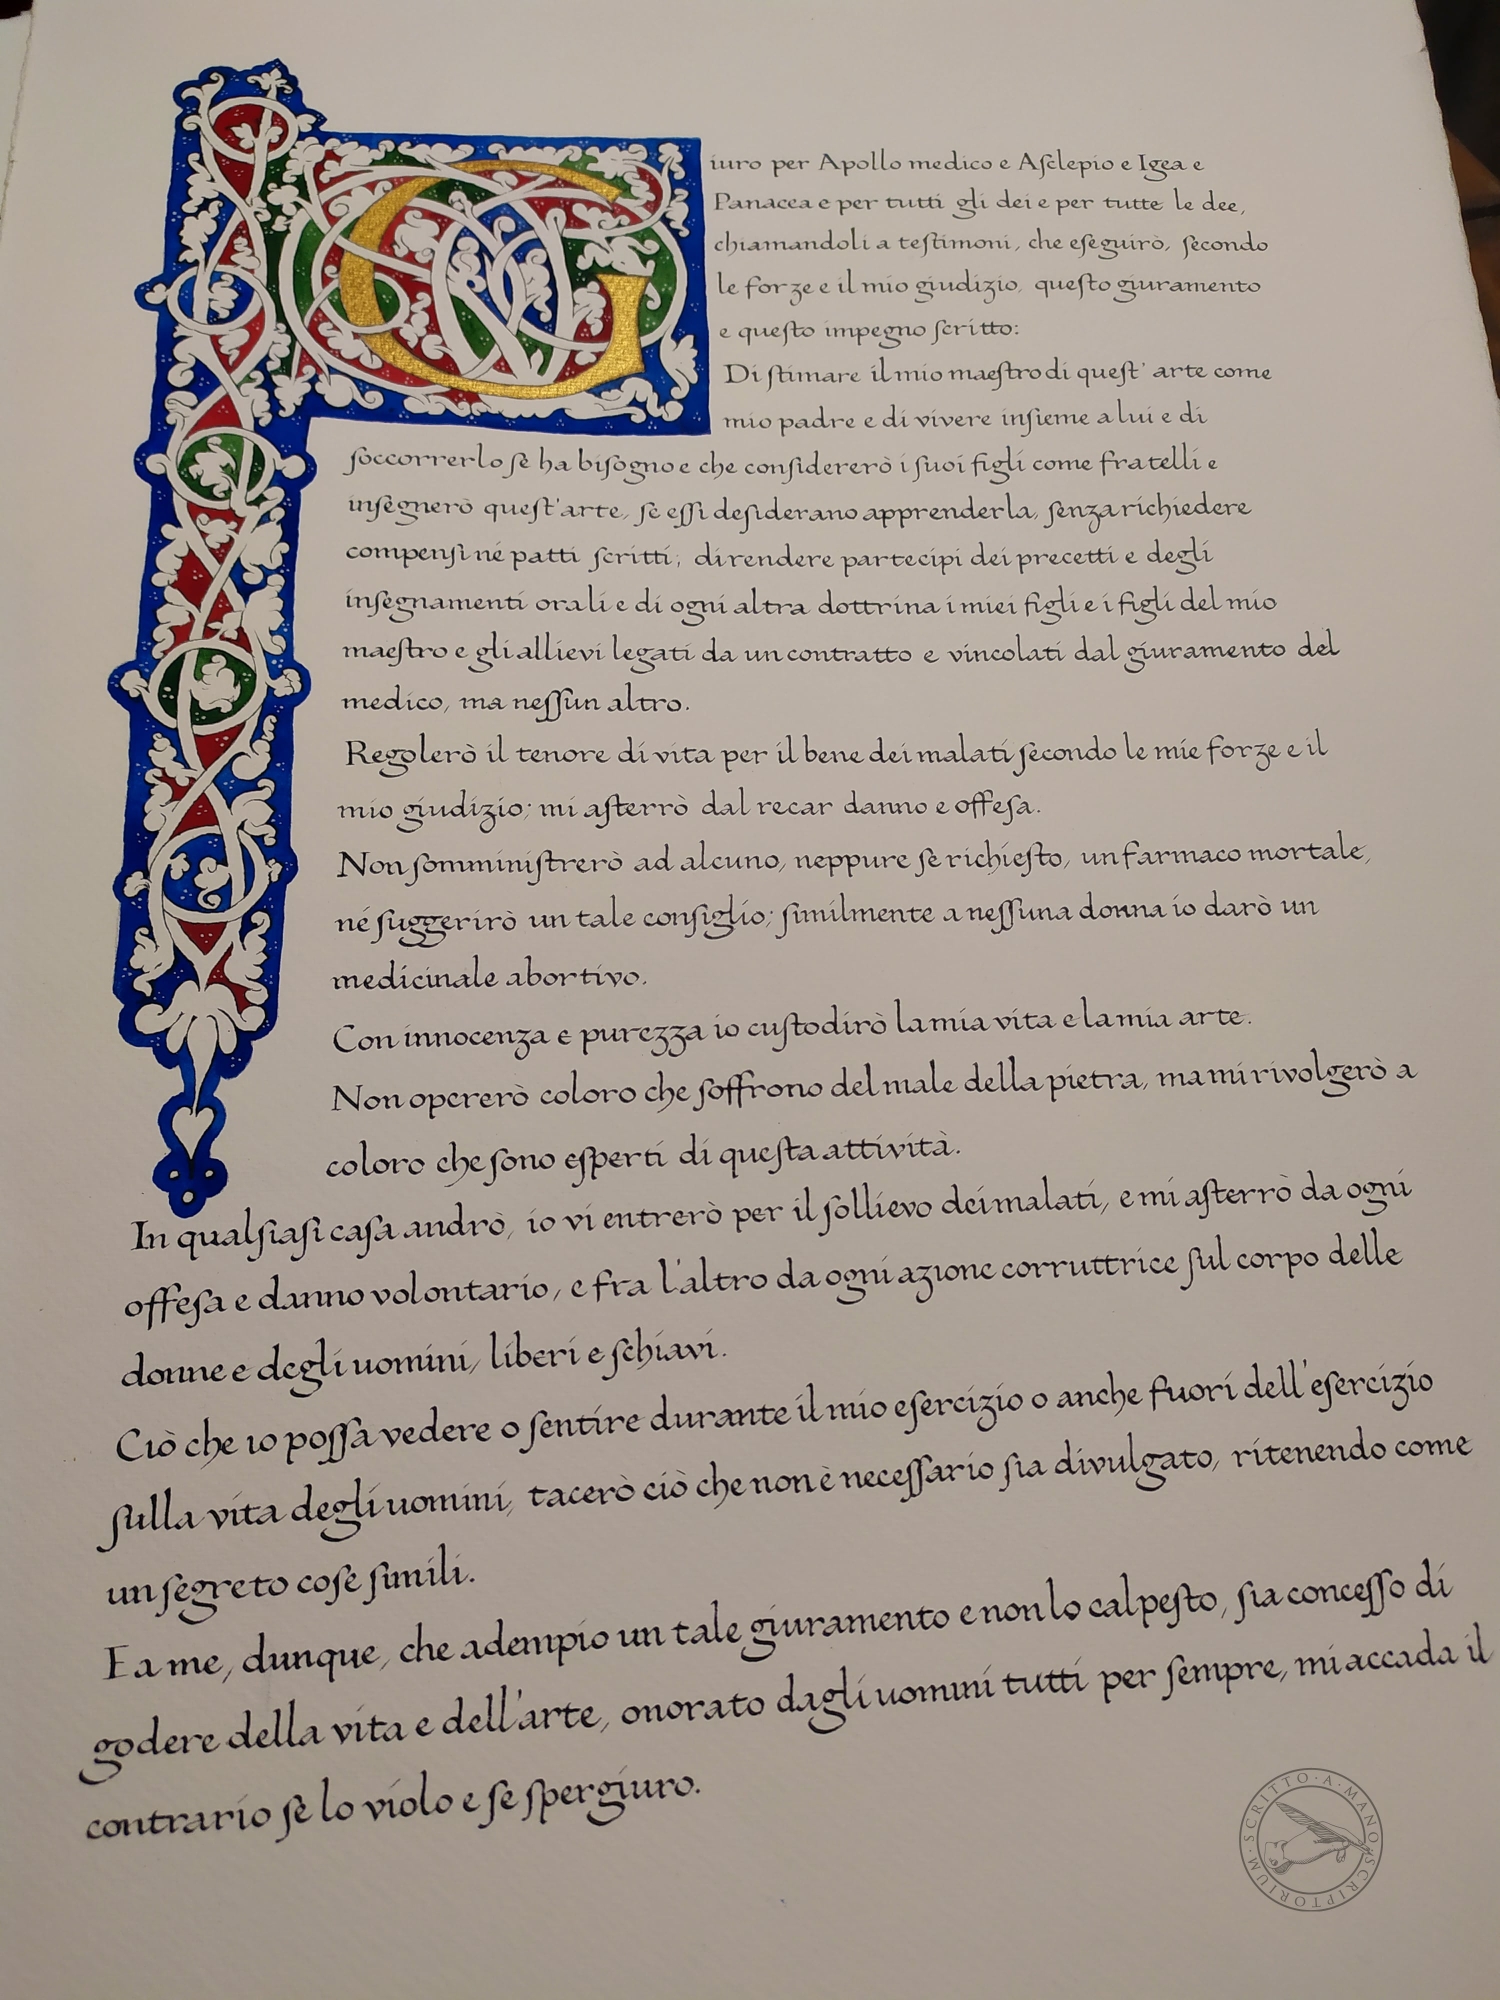 Giuro per Apollo medico e Aſclepio e Igea e
Panacea e per tutti gli dei e per tutte le dee,
chiamandoli a teſtimoni, che eſeguirò, ſecondo
le forze e il mio giudizio, queſto giuramento
e queſto impegno ſcritto:
Di ſtimare il mio maeſtro di queſt' arte come
mio padre e di vivere inſieme a lui e di
ſoccorrerlo ſe ha biſogno e che conſidererò i ſuoi figli come fratelli e
inſegnerò queſt'arte, ſe eſſi deſiderano apprenderla, ſenza richiedere
compenſi né patti ſcritti; di rendere partecipi dei precetti e degli
inſegnamenti orali e di ogni altra dottrina i miei figli e i figli del mio
maeſtro e gli allievi legati da un contratto e vincolati dal giuramento del
medico, ma neſſun altro.
Regolerò il tenore di vita per il bene dei malati ſecondo le mie forze e il
mio giudizio; mi aſterrò dal recar danno e offeſa.
Non ſomminiſtrerò ad alcuno, neppure ſe richieſto, un farmaco mortale,
né ſuggerirò un tale conſiglio; ſimilmente a neſſuna donna io darò un
medicinale abortivo.
Con innocenza e purezza io cuſtodirò la mia vita e la mia arte.
Non opererò coloro che ſoffrono del male della pietra, ma mi rivolgerò a
coloro che ſono eſperti di queſta attività.
In qualſiaſi caſa andrò, io vi entrerò per il ſollievo dei malati, e mi aſterrò da ogni
offeſa e danno volontario, e fra l'altro da ogni azione corruttrice ſul corpo delle
donne e degli uomini, liberi e ſchiavi.
Ciò che io poſſa vedere o ſentire durante il mio eſercizio o anche fuori dell'eſercizio
ſulla vita degli uomini, tacerò ciò che non è neceſſario ſia divulgato, ritenendo come
un ſegreto coſe ſimili.
E a me, dunque, che adempio un tale giuramento e non lo calpeſto, ſia conceſſo di
godere della vita e dell'arte, onorato dagli uomini tutti per ſempre, mi accada il
contrario ſe lo violo e ſe ſpergiuro.
SCRITTO·A·MANO·SCRIPTORIUM·